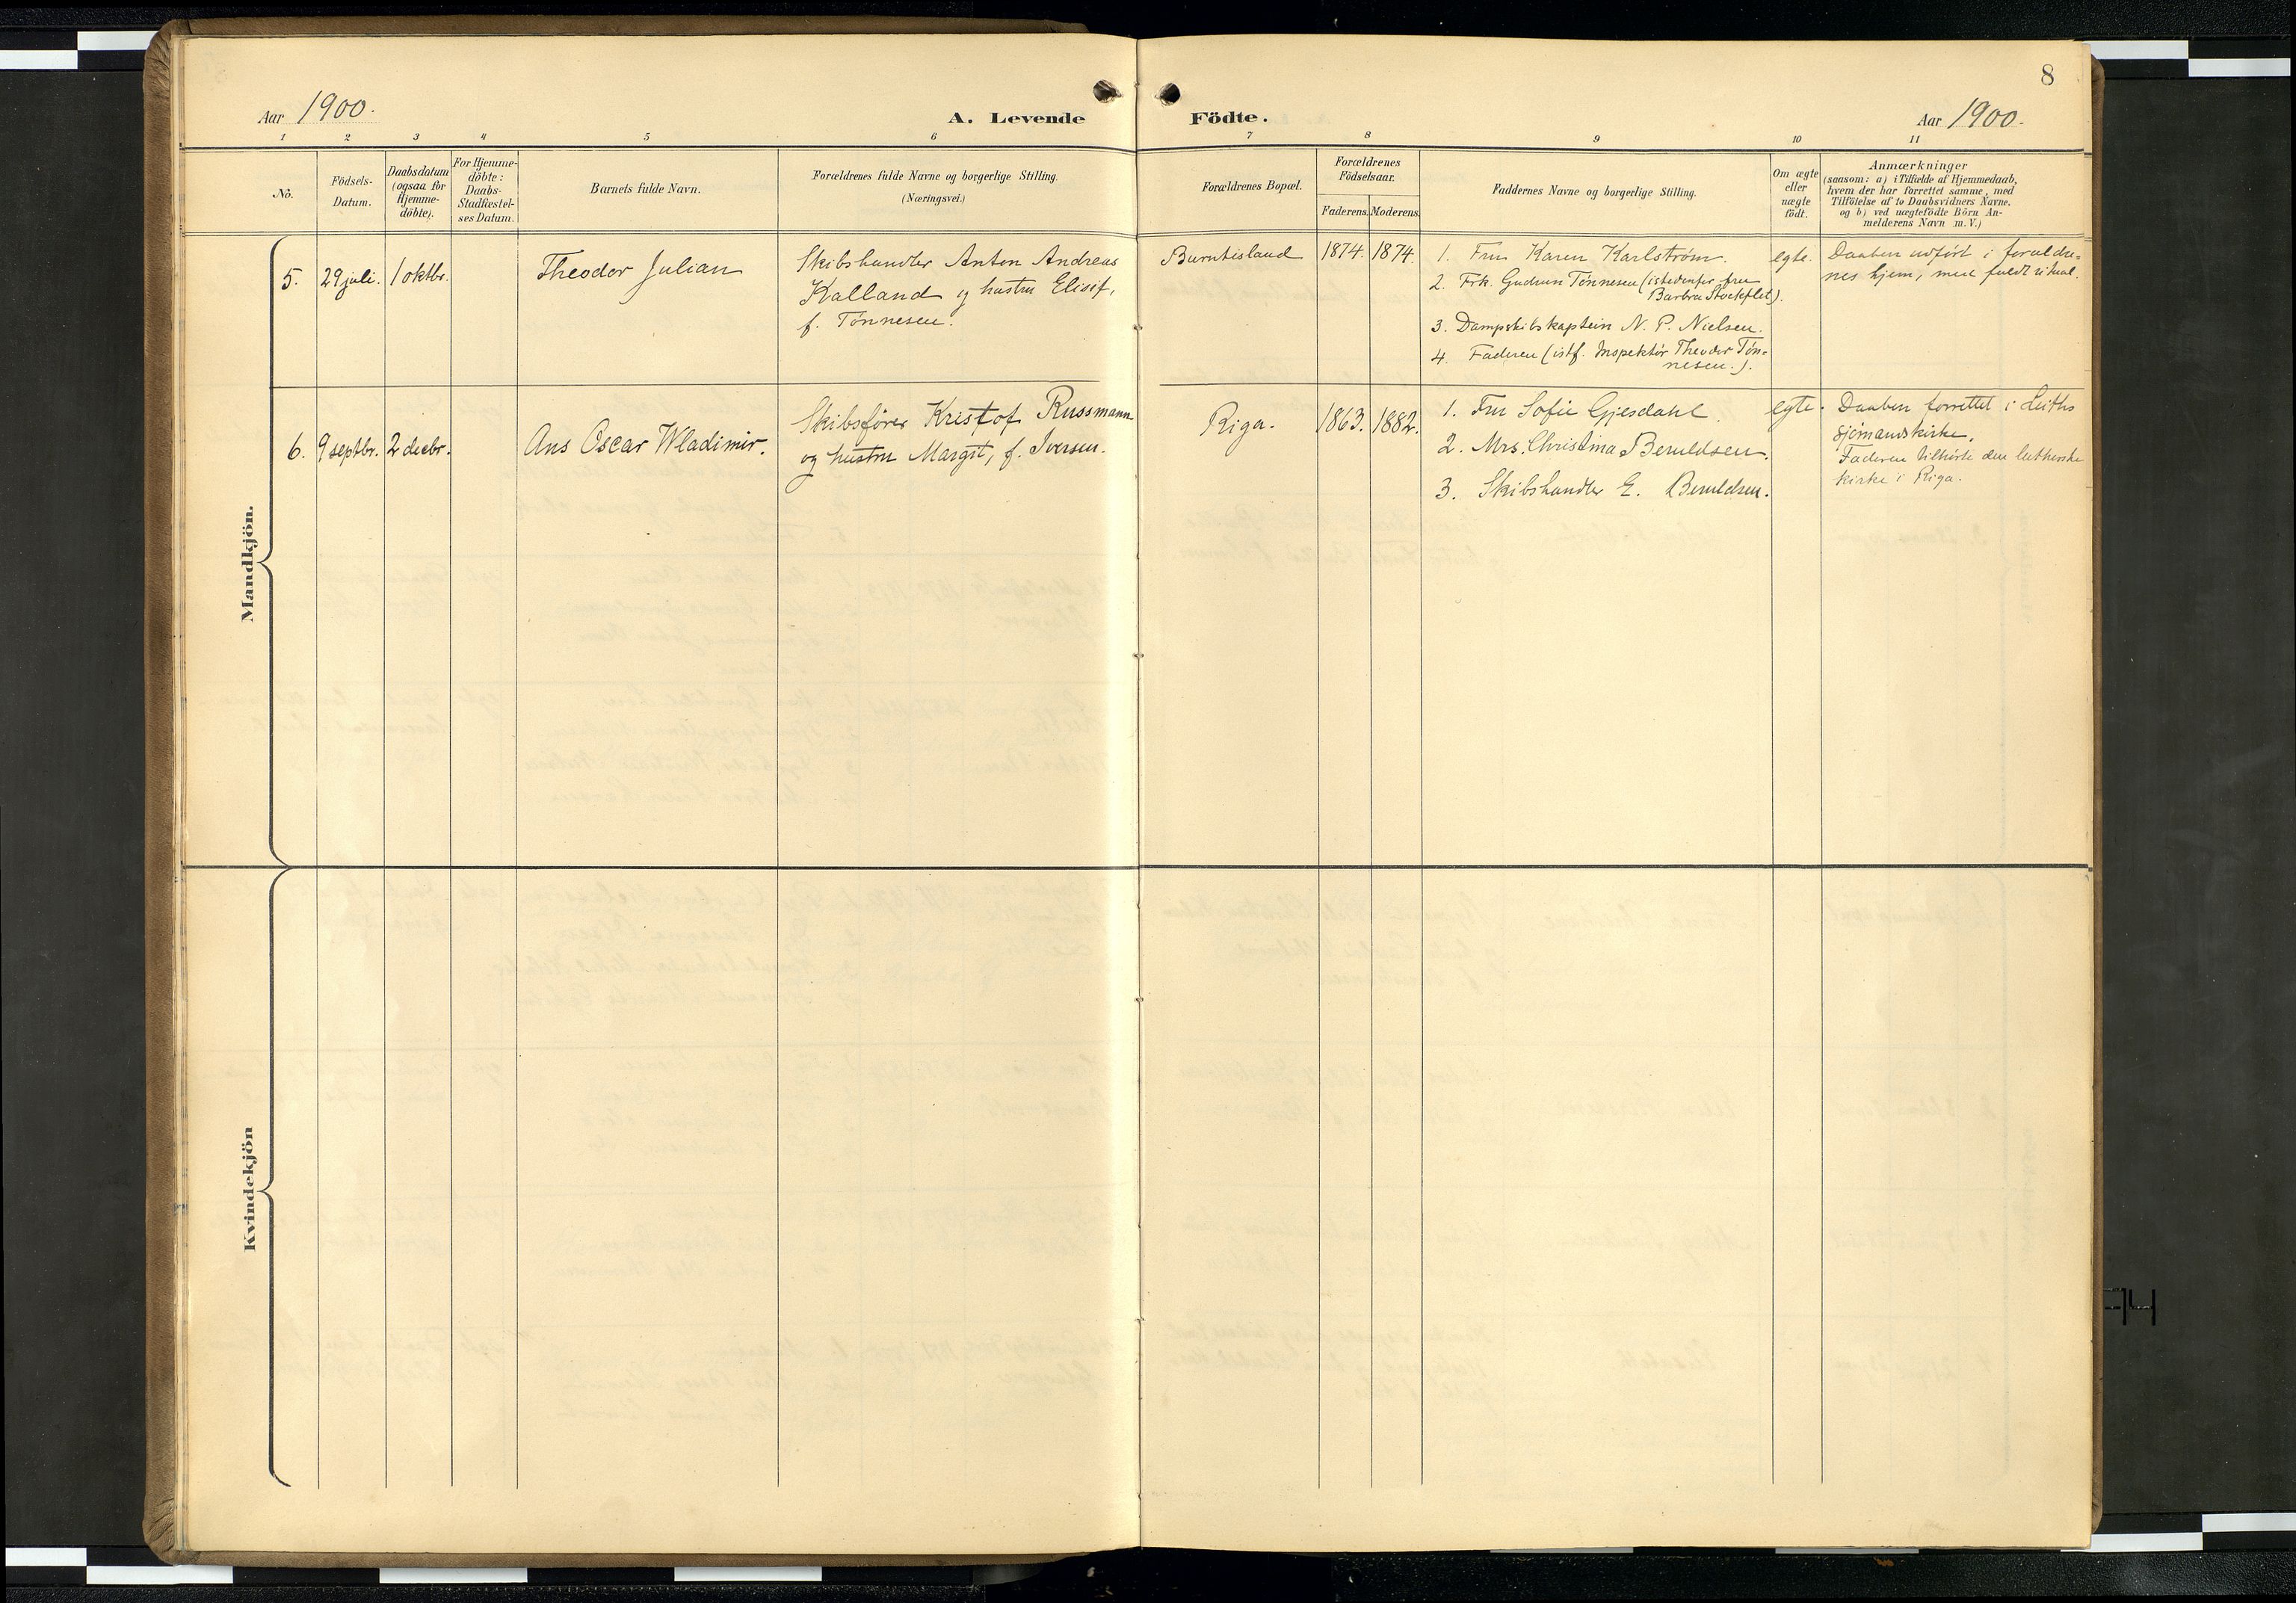 8
Aar 1900.
A. Levende Födte.
Aar 1900.
1 2 3 4 5 6 7 8 9 10 11
No.
Födsels-
Datum.
Daabsdatum
(ogsaa for
Hjemme-
döbte).
For Hjemme-
döbte:
Daabs-
Stadfæstel-
ses Datum.
Barnets fulde Navn.
Forældrenes fulde Navne og borgerlige Stilling.
(Næringsvei.)
Forældrenes Bopæl.
Forældrenes
Födselsaar.
Faderens. Moderens.
Faddernes Navne og borgerlige Stilling.
Om ægte
eller
uægte
födt.
Anmærkninger
(saasom: a) i Tilfælde af Hjemmedaab,
hvem der har forrettet samme, med
Tilföielse af to Daabsvidners Navne.
og b) ved uægtefödte Börn An-
melderens Navn m. V.)
Mandkjön.
5.
29 juli.
1 oktbr.
Theodor Julian
Skibshandler Anton Andreas
Kalland og hustru Elisif,
f. Tönnesen.
Burntisland
1874. 1874.
1. Fru Karen Karlström.
2. Frk. Gudrun Tönnesen (istedenfor fru
Barbra Stockflet).
3. Dampskibskaptein N. P. Nielsen.
4. Faderen (istf. Inspektör Theodor Tön-
nesen.).
egte.
Daaben udfört i foraldre-
nes hjem, med fuldt ritual.
6.
9 septbr.
2 decbr.
Ans Oscar Wladimir.
Skibsförer Kristof Russmann
og hustru Margit, f. Iversen.
Riga.
1863. 1882.
1. Fru Sofie Gjesdahl.
2. Mrs. Christina Beruldsen.
3. Skibshandler E. Beruldsen.
egte.
Daaben forrettet i Leiths
sjömandskirke.
Faderen tilhörte den lutherske
kirke i Riga.
Kvindekjön